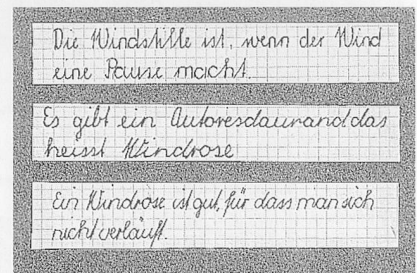 Die Windstille ist, wenn der Wind
eine Pause macht.
Es gibt ein Autoresdaurand das
heisst Windrose
Ein Windrose ist gut, für dass man sich
nicht verläuft.